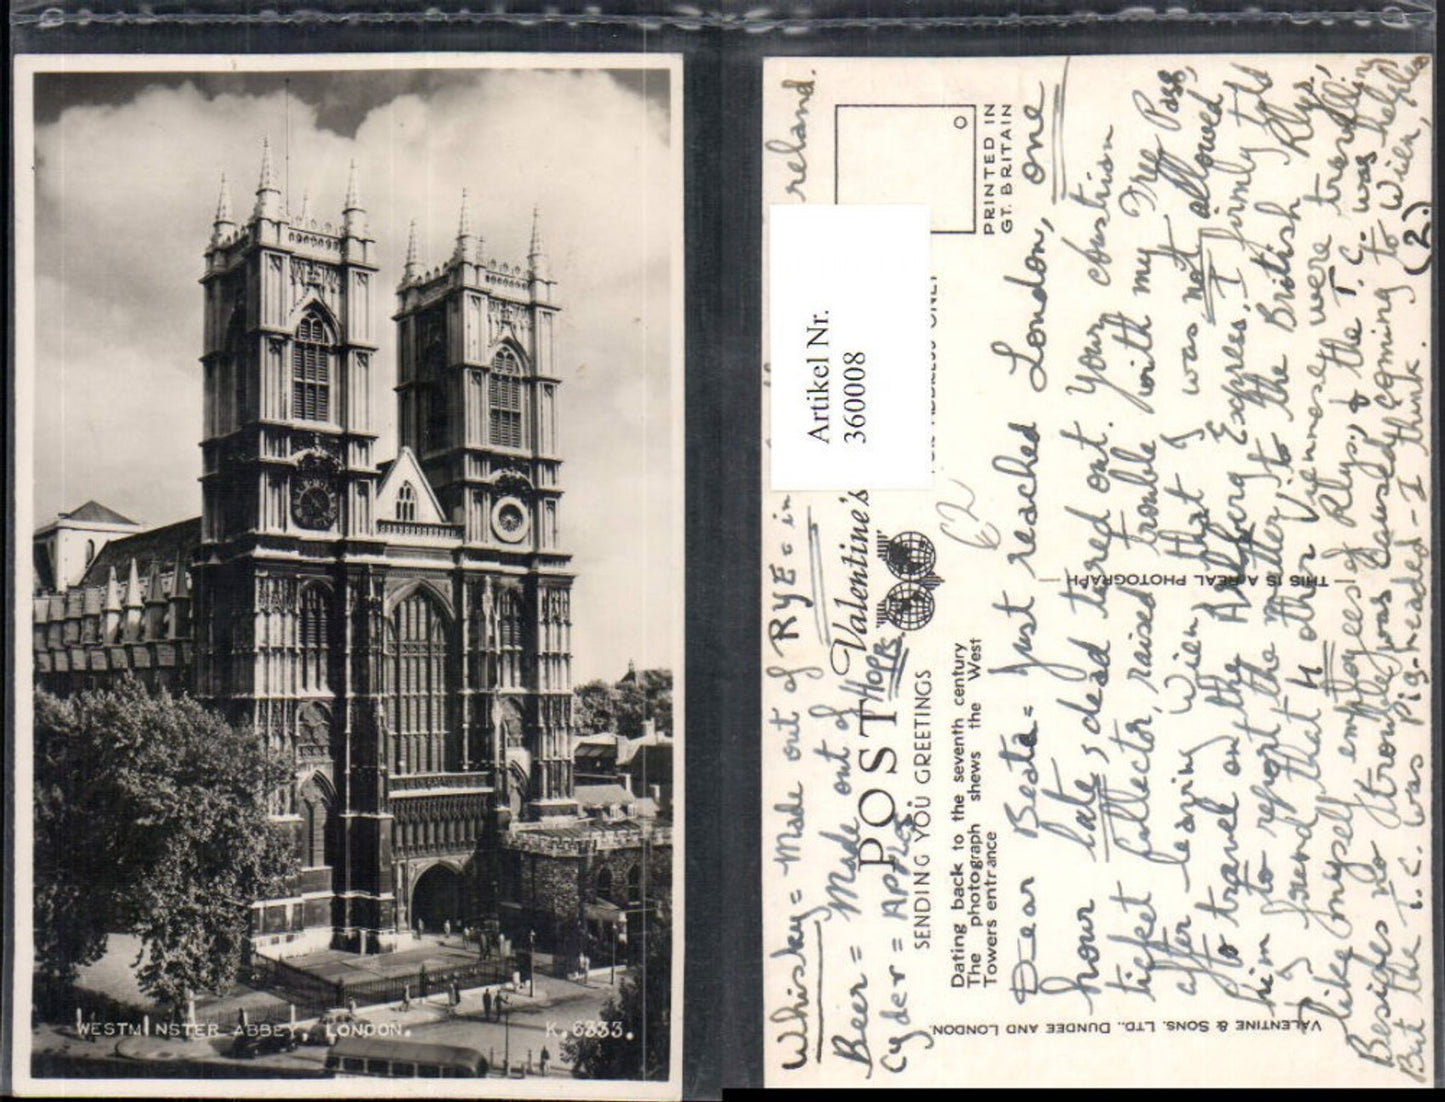 WESTMINSTER ABBEY, LONDON.
K.6333.
Whisky = Made out of RYE = in reland.
Beer = Made out of Hopps.
Cyder = APPLES
POST
Valentine's
Artikel Nr.
360008
SENDING YOU GREETINGS
PRINTED IN
GT. BRITAIN
Dating back to the seventh century
The photograph shews the West
Towers entrance
62
Dear Beata = Just reached London, one
hour late, & dead tired out. Your austrian
ticket collector, raised trouble with my Free Pass,
after leaving Wien that I was not allowed
to travel on the Arlberg Express, I firmly told
him to report the matter to the British Rlys,
I found that 4 other Viennese were travelling
like myself employees of Rlys., & the T.C. was helpless
Besides no trouble was caused coming to Wien,
But the T.C. was Pig-headed - I think. (2.)
THIS IS A REAL PHOTOGRAPH
VALENTINE & SONS. LTD., DUNDEE AND LONDON.